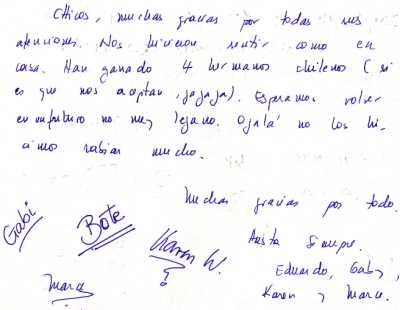 Chicos, muchas gracias por todas sus
atenciones. Nos hicieron sentir como en
casa. Han ganado 4 hermanos chilenos (si
es que nos aceptan, jajaja). Esperamos volver
en un futuro no muy lejano. Ojalá no los hi-
cimos rabiar mucho.
Muchas gracias por todo.
Hasta siempre.
Eduardo, Gaby,
Karen y Marce.
Gabi
Bote
Karen W.
?
Marce